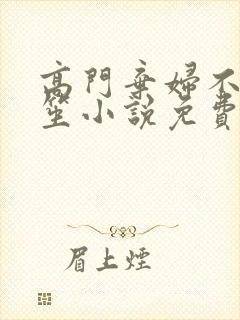 高門棄婦不
笙小說免費
眉上煙